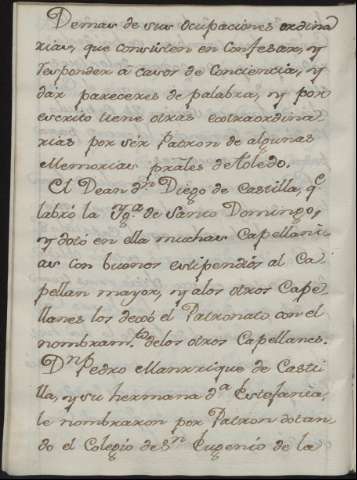 Demas de sus ocupaciones ordina
rias, que consisten en Confesar, y
responder á casos de Conciencia, y
dár pareceres de palabra, y por
escrito tiene otras extraordina
rias por sér Patron de algunas
Memorias prales de toledo.
El Dean dn Diego de Castilla, qe
labró la Yga de Santo Domingo,
y dotó en ella muchas Capellani
as con buenos estipendios al Ca
pellan mayor, y alos otros Cape-
llanes los dexó el Patronato con el
nombramto delos otros Capellanes.
Dn Pedro Manrrique de Casti
lla, y su hermana da Estefania,
le nombraron por Patron dotan
do el Colegio de Sn Eugenio de la